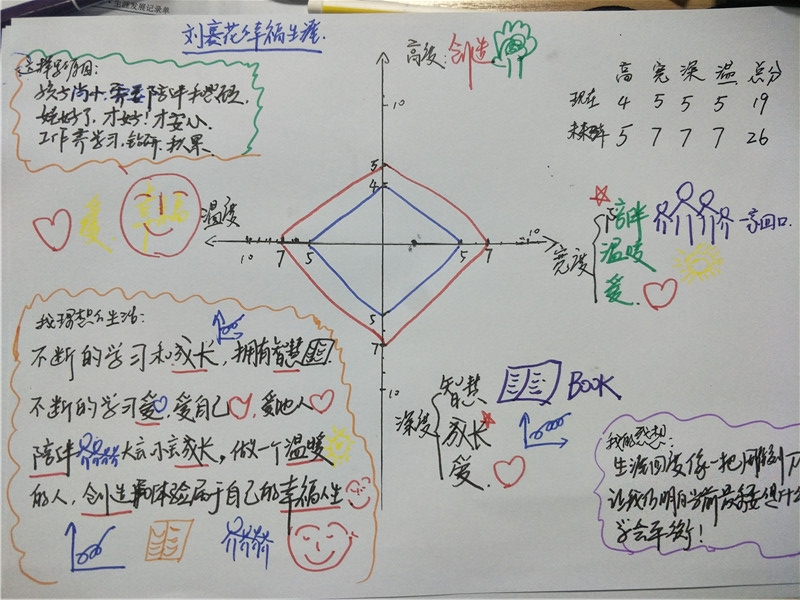 生涯发展记录单
刘赛花幸福生涯
这样的原因:
孩子尚小,需要陪伴和照顾,
娃好了,才好!才安心
工作养学习,钻研,积累.
高度:创造
高 宽 深 温 总分
现在 4 5 5 5 19
未来 5 7 7 7 26
10
5
4
温度
爱
幸福
10 7 5 5 7 10
宽度
陪伴
温暖
爱.
一家四口
5
7
10
我理想的生活:
不断的学习和成长,拥有智慧
不断的学习爱,爱自己,爱他人
陪伴大宝小宝成长,做一个温暖
的人,创造和体验属于自己的幸福人生
深度
智慧
成长
爱.
BOOK
我的感想:
生涯四度像一把
让我们明白当前最重要是什么
学会平衡!